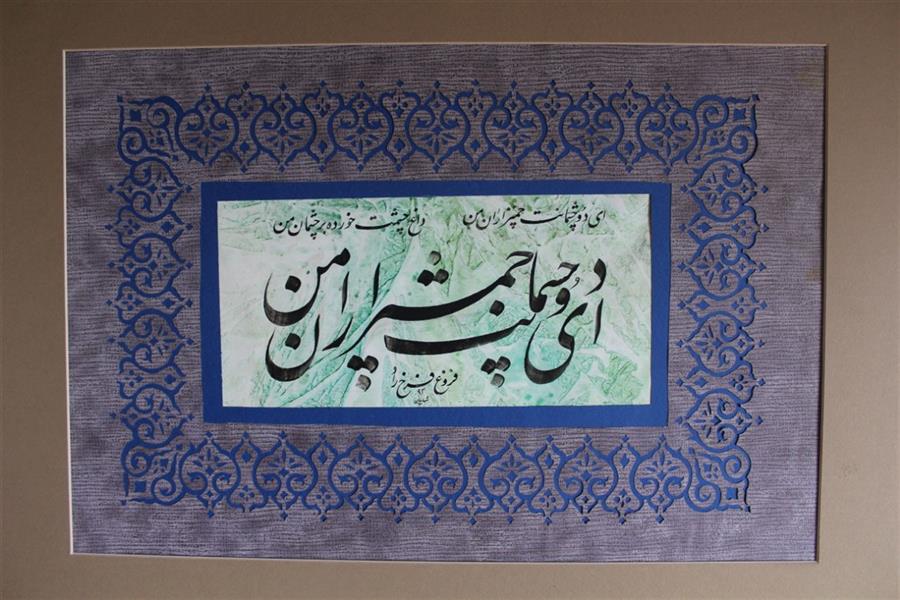 ای دو چشمانت چمنزاران من داغ چشمت خورده بر چشمان من
ای دو چشمانت چمنزاران من
فروغ فرخزاد
۹۳